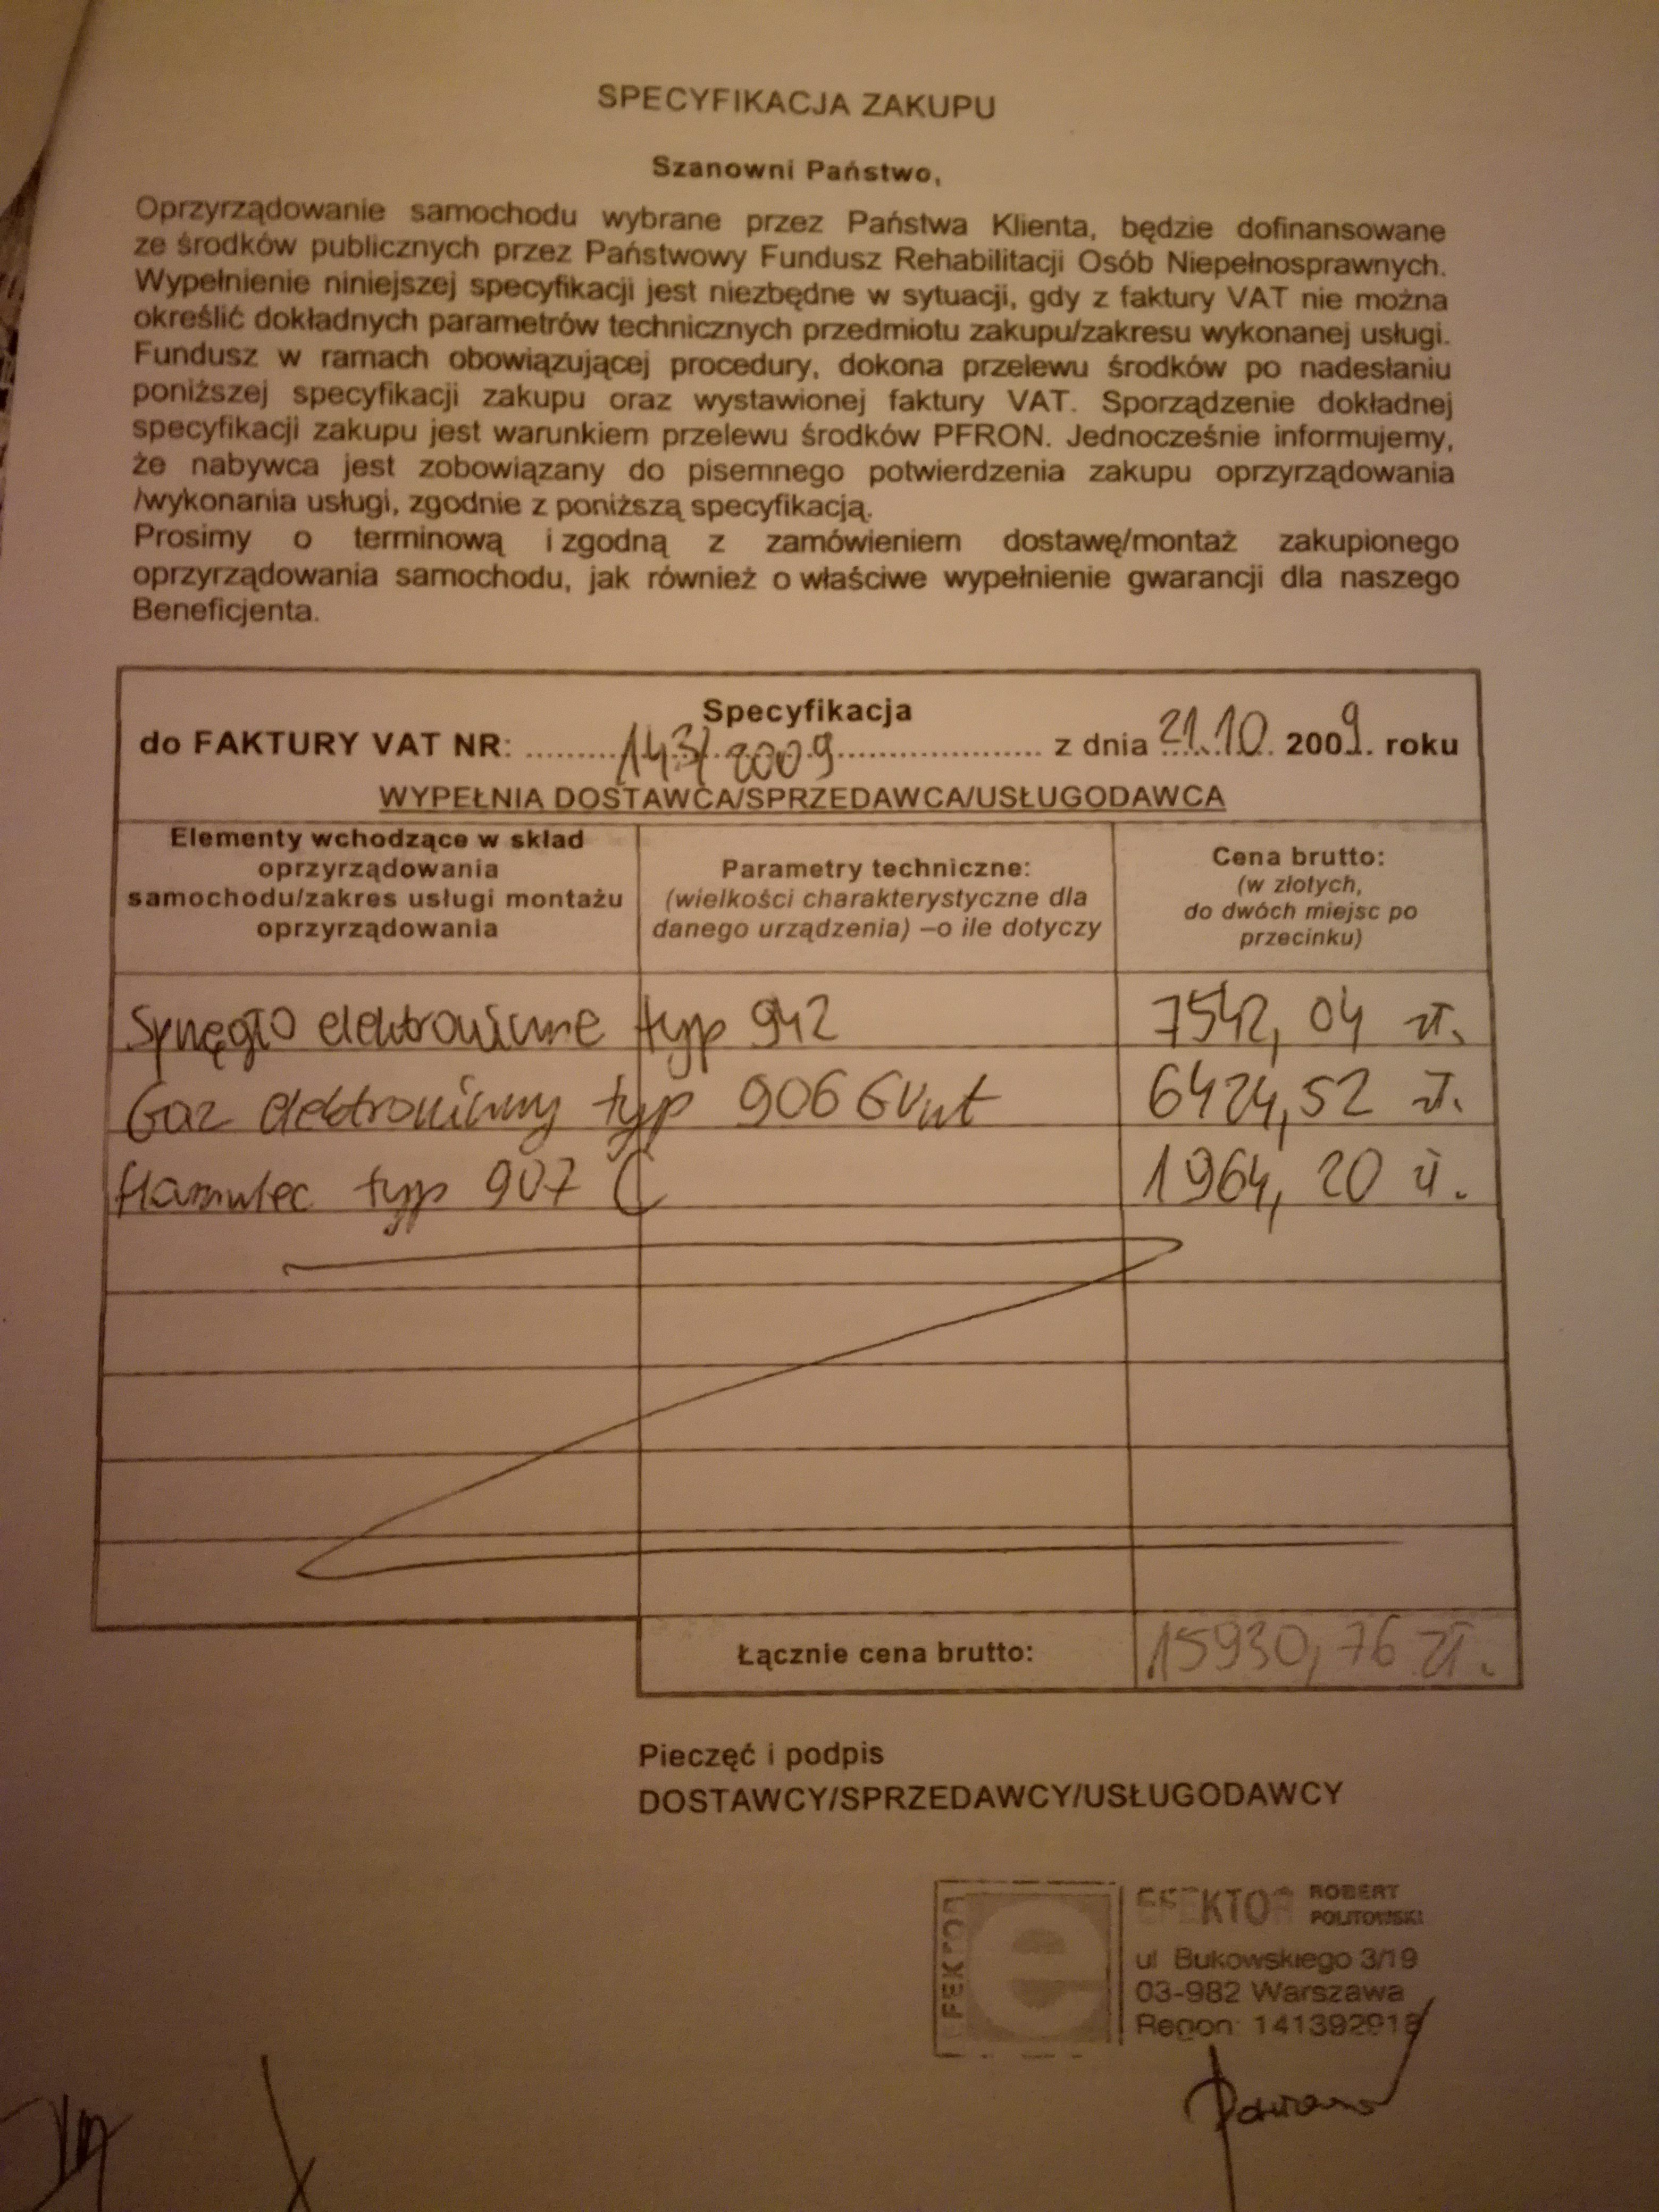 SPECYFIKACJA ZAKUPU
Szanowni Państwo,
Oprzyrządowanie samochodu wybrane przez Państwa Klienta, będzie dofinansowane
ze środków publicznych przez Państwowy Fundusz Rehabilitacji Osób Niepełnosprawnych.
Wypełnienie niniejszej specyfikacji jest niezbędne w sytuacji, gdy z faktury VAT nie można
określić dokładnych parametrów technicznych przedmiotu zakupu/zakresu wykonanej usługi.
Fundusz w ramach obowiązującej procedury, dokona przelewu środków po nadesłaniu
poniższej specyfikacji zakupu oraz wystawionej faktury VAT. Sporządzenie dokładnej
specyfikacji zakupu jest warunkiem przelewu środków PFRON. Jednocześnie informujemy,
że nabywca jest zobowiązany do pisemnego potwierdzenia zakupu oprzyrządowania
/wykonania usługi, zgodnie z poniższą specyfikacją.
Prosimy o terminową i zgodną z zamówieniem dostawę/montaż zakupionego
oprzyrządowania samochodu, jak również o właściwe wypełnienie gwarancji dla naszego
Beneficjenta.
Specyfikacja
do FAKTURY VAT NR: 143/2009 z dnia 21.10. 2009. roku
WYPEŁNIA DOSTAWCA/SPRZEDAWCA/USŁUGODAWCA
Elementy wchodzące w skład
oprzyrządowania
samochodu/zakres usługi montażu
oprzyrządowania
Parametry techniczne:
(wielkości charakterystyczne dla
danego urządzenia) –o ile dotyczy
Cena brutto:
(w złotych,
do dwóch miejsc po
przecinku)
Sprzęgło elektroniczne typ 942 7542,04 zł.
Gaz elektroniczny typ 906 6424,52 zł.
Hamulec typ 907 C 1964,20 zł.
Łącznie cena brutto: 15930,76 zł.
Pieczęć i podpis
DOSTAWCY/SPRZEDAWCY/USŁUGODAWCY
EFEKTOR
e
EFEKTOR ROBERT
POLITOWSKI
ul Bukowskiego 3/19
03-982 Warszawa
Regon: 141392918